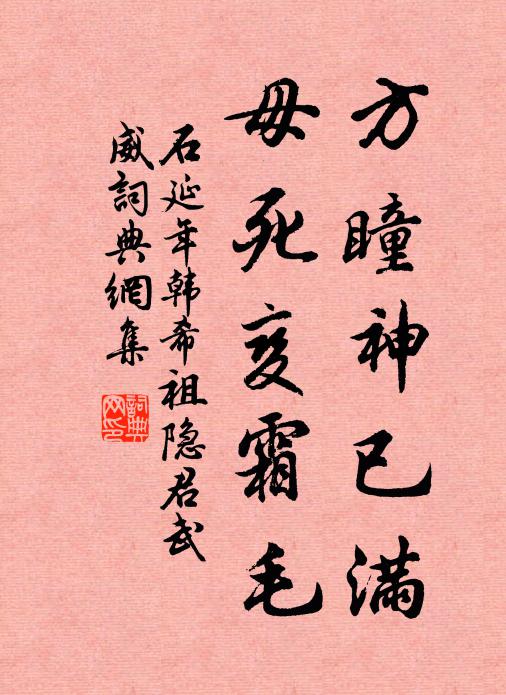 方瞳神已满
毋死变霜毛
石延年韩希祖隐君武
威詞典網集
詞典网印